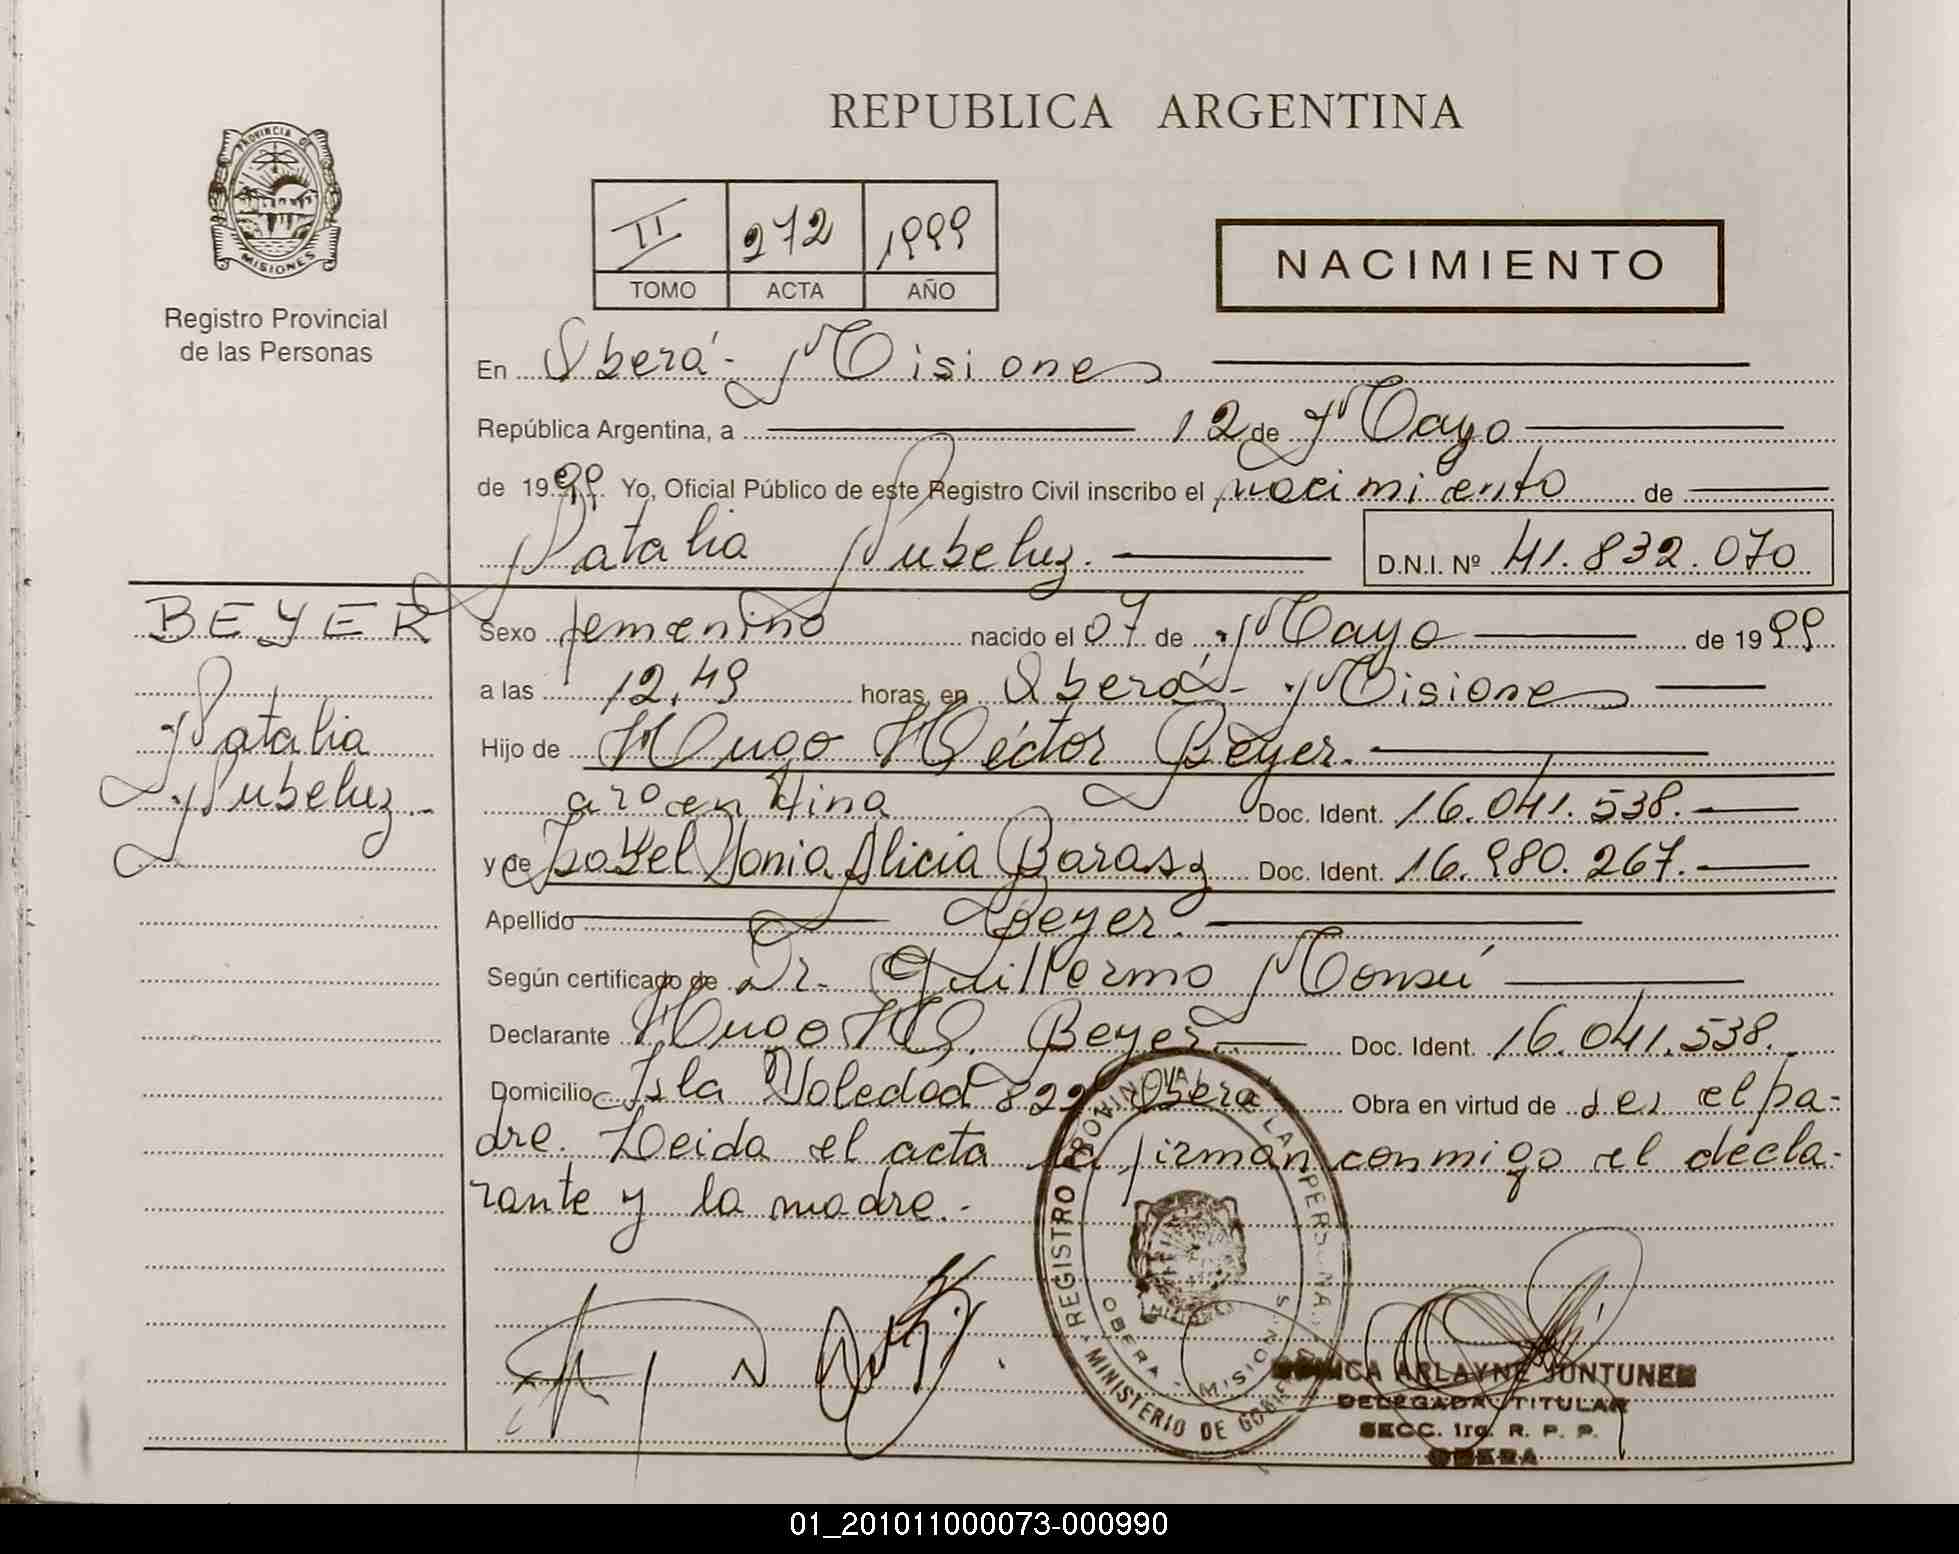 REPUBLICA ARGENTINA
PROVINCIA DE
MISIONES
Registro Provincial
de las Personas
II 272 1999
TOMO ACTA AÑO
NACIMIENTO
En Oberá - Misiones
República Argentina, a 12 de Mayo
de 1999 Yo, Oficial Público de este Registro Civil inscribo el nacimiento de
Natalia Nubeluz. D.N.I. Nº 41.832.070
BEYER
Natalia
Nubeluz.-
Sexo femenino nacido el 07 de Mayo de 1999
a las 12,49 horas, en Oberá - Misiones
Hijo de Hugo Héctor Beyer.
argentina Doc. Ident. 16.041.538.
y de Isabel Sonia Alicia Doc. Ident. 16.980.267.
Apellido Beyer.
Según certificado de Dr. Guillermo Monsú
Declarante Hugo H. Beyer. Doc. Ident. 16.041.538.
Domicilio Isla Soledad 822 Oberá Obra en virtud de ser el pa-
dre. Leida el acta la firman conmigo el decla-
rante y la madre.-
REGISTRO PROVINCIAL DE LAS PERSONAS
MINISTERIO DE GOBIERNO
OBERA - MISIONES
ARLAYNE JUNTUNEN
DELEGADA TITULAR
SECC. 1ra. R. P. P.
OBERA
01_201011000073-000990